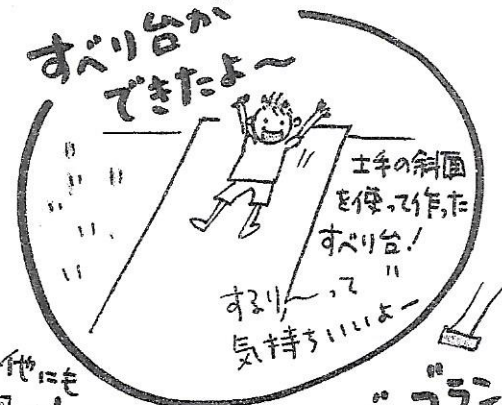 すべり台が
できたよ～
土手の斜面
を使って作った
すべり台！
するり～って
気持ちいいよー
他にも
ブラン